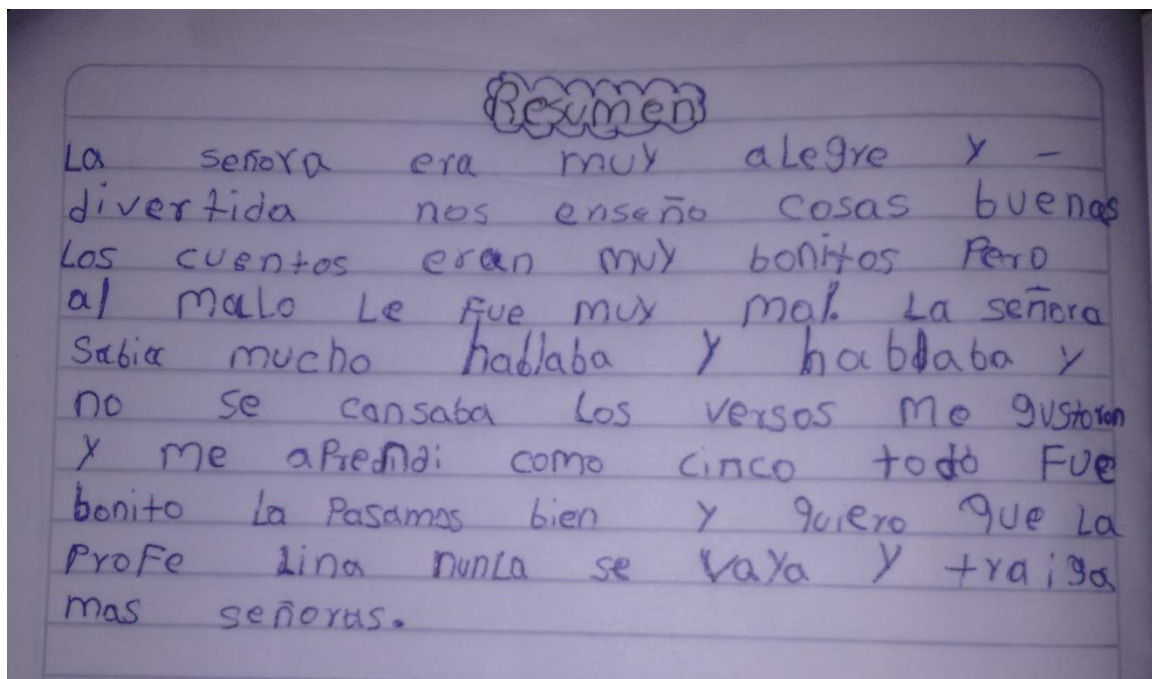 Resumen
La señora era muy alegre y -
divertida nos enseño cosas buenas
Los cuentos eran muy bonitos Pero
al malo Le Fue muy mal. La señora
Sabia mucho hablaba y hablaba y
no se cansaba Los versos me gustoron
y me aprendi como cinco todo Fue
bonito La Pasamos bien y quiero que La
Profe Lina nunca se vaya y traiga
mas señoras.